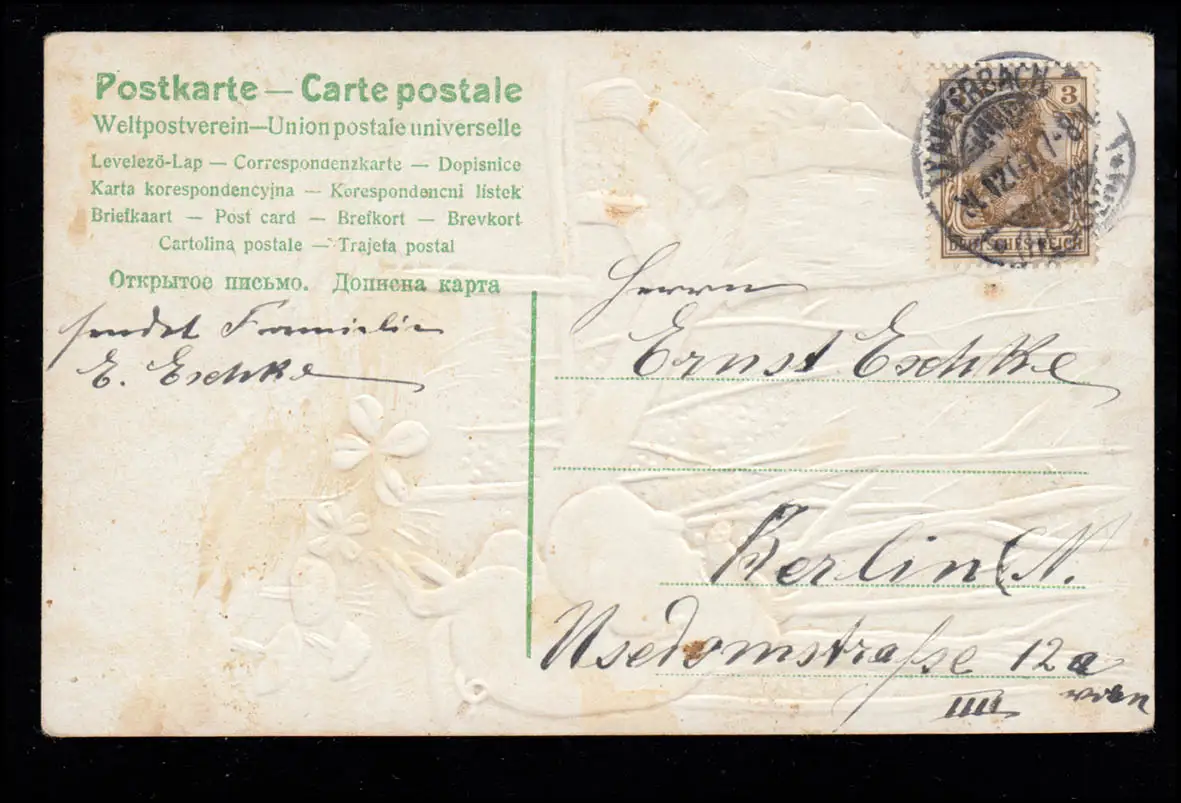 Postkarte — Carte postale
Weltpostverein—Union postale universelle
Levelezö-Lap — Correspondenzkarte — Dopisnice
Karta korespondencyjna — Korespondencni listek
Briefkaart — Post card — Brefkort — Brevkort
Cartolina postale — Trajeta postal
Открытое письмо. Дописна карта
sendet Familie
E. Eschke
3
DEUTSCHES REICH
Herrn
Ernst Eschke
Berlin N.
Usedomstraße 12a
IIII vorn